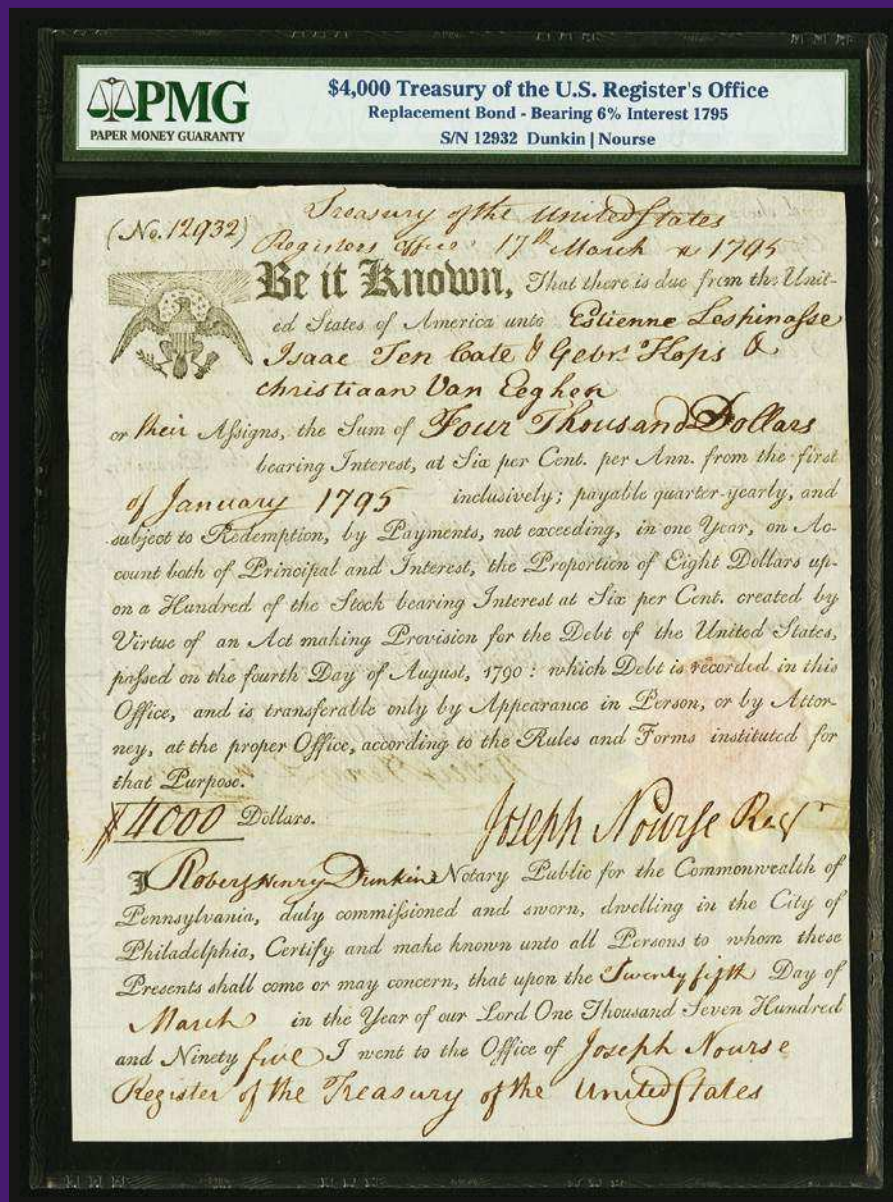 PMG
PAPER MONEY GUARANTY
$4,000 Treasury of the U.S. Register's Office
Replacement Bond - Bearing 6% Interest 1795
S/N 12932 Dunkin | Nourse
Treasury of the United States
(No. 12932)
Registers Office 17th March 1795
Be it Known, That there is due from the Unit-
ed States of America unto Estienne Lespinasse
Isaac Ten Cate & Gebr. Hops &
Christiaan Van Eeghen
or their Assigns, the Sum of Four Thousand Dollars
bearing Interest, at Six per Cent. per Ann. from the first
of January 1795 inclusively; payable quarter-yearly, and
subject to Redemption, by Payments, not exceeding, in one Year, on Ac-
count both of Principal and Interest, the Proportion of Eight Dollars up-
on a Hundred of the Stock bearing Interest at Six per Cent. created by
Virtue of an Act making Provision for the Debt of the United States,
passed on the fourth Day of August, 1790: which Debt is recorded in this
Office, and is transferable only by Appearance in Person, or by Attor-
ney, at the proper Office, according to the Rules and Forms instituted for
that Purpose.
$4000 Dollars.
Joseph Nourse Regr
I Robert Henry Dunkin Notary Public for the Commonwealth of
Pennsylvania, duly commissioned and sworn, dwelling in the City of
Philadelphia, Certify and make known unto all Persons to whom these
Presents shall come or may concern, that upon the Twenty fifth Day of
March in the Year of our Lord One Thousand Seven Hundred
and Ninety five I went to the Office of Joseph Nourse
Register of the Treasury of the United States